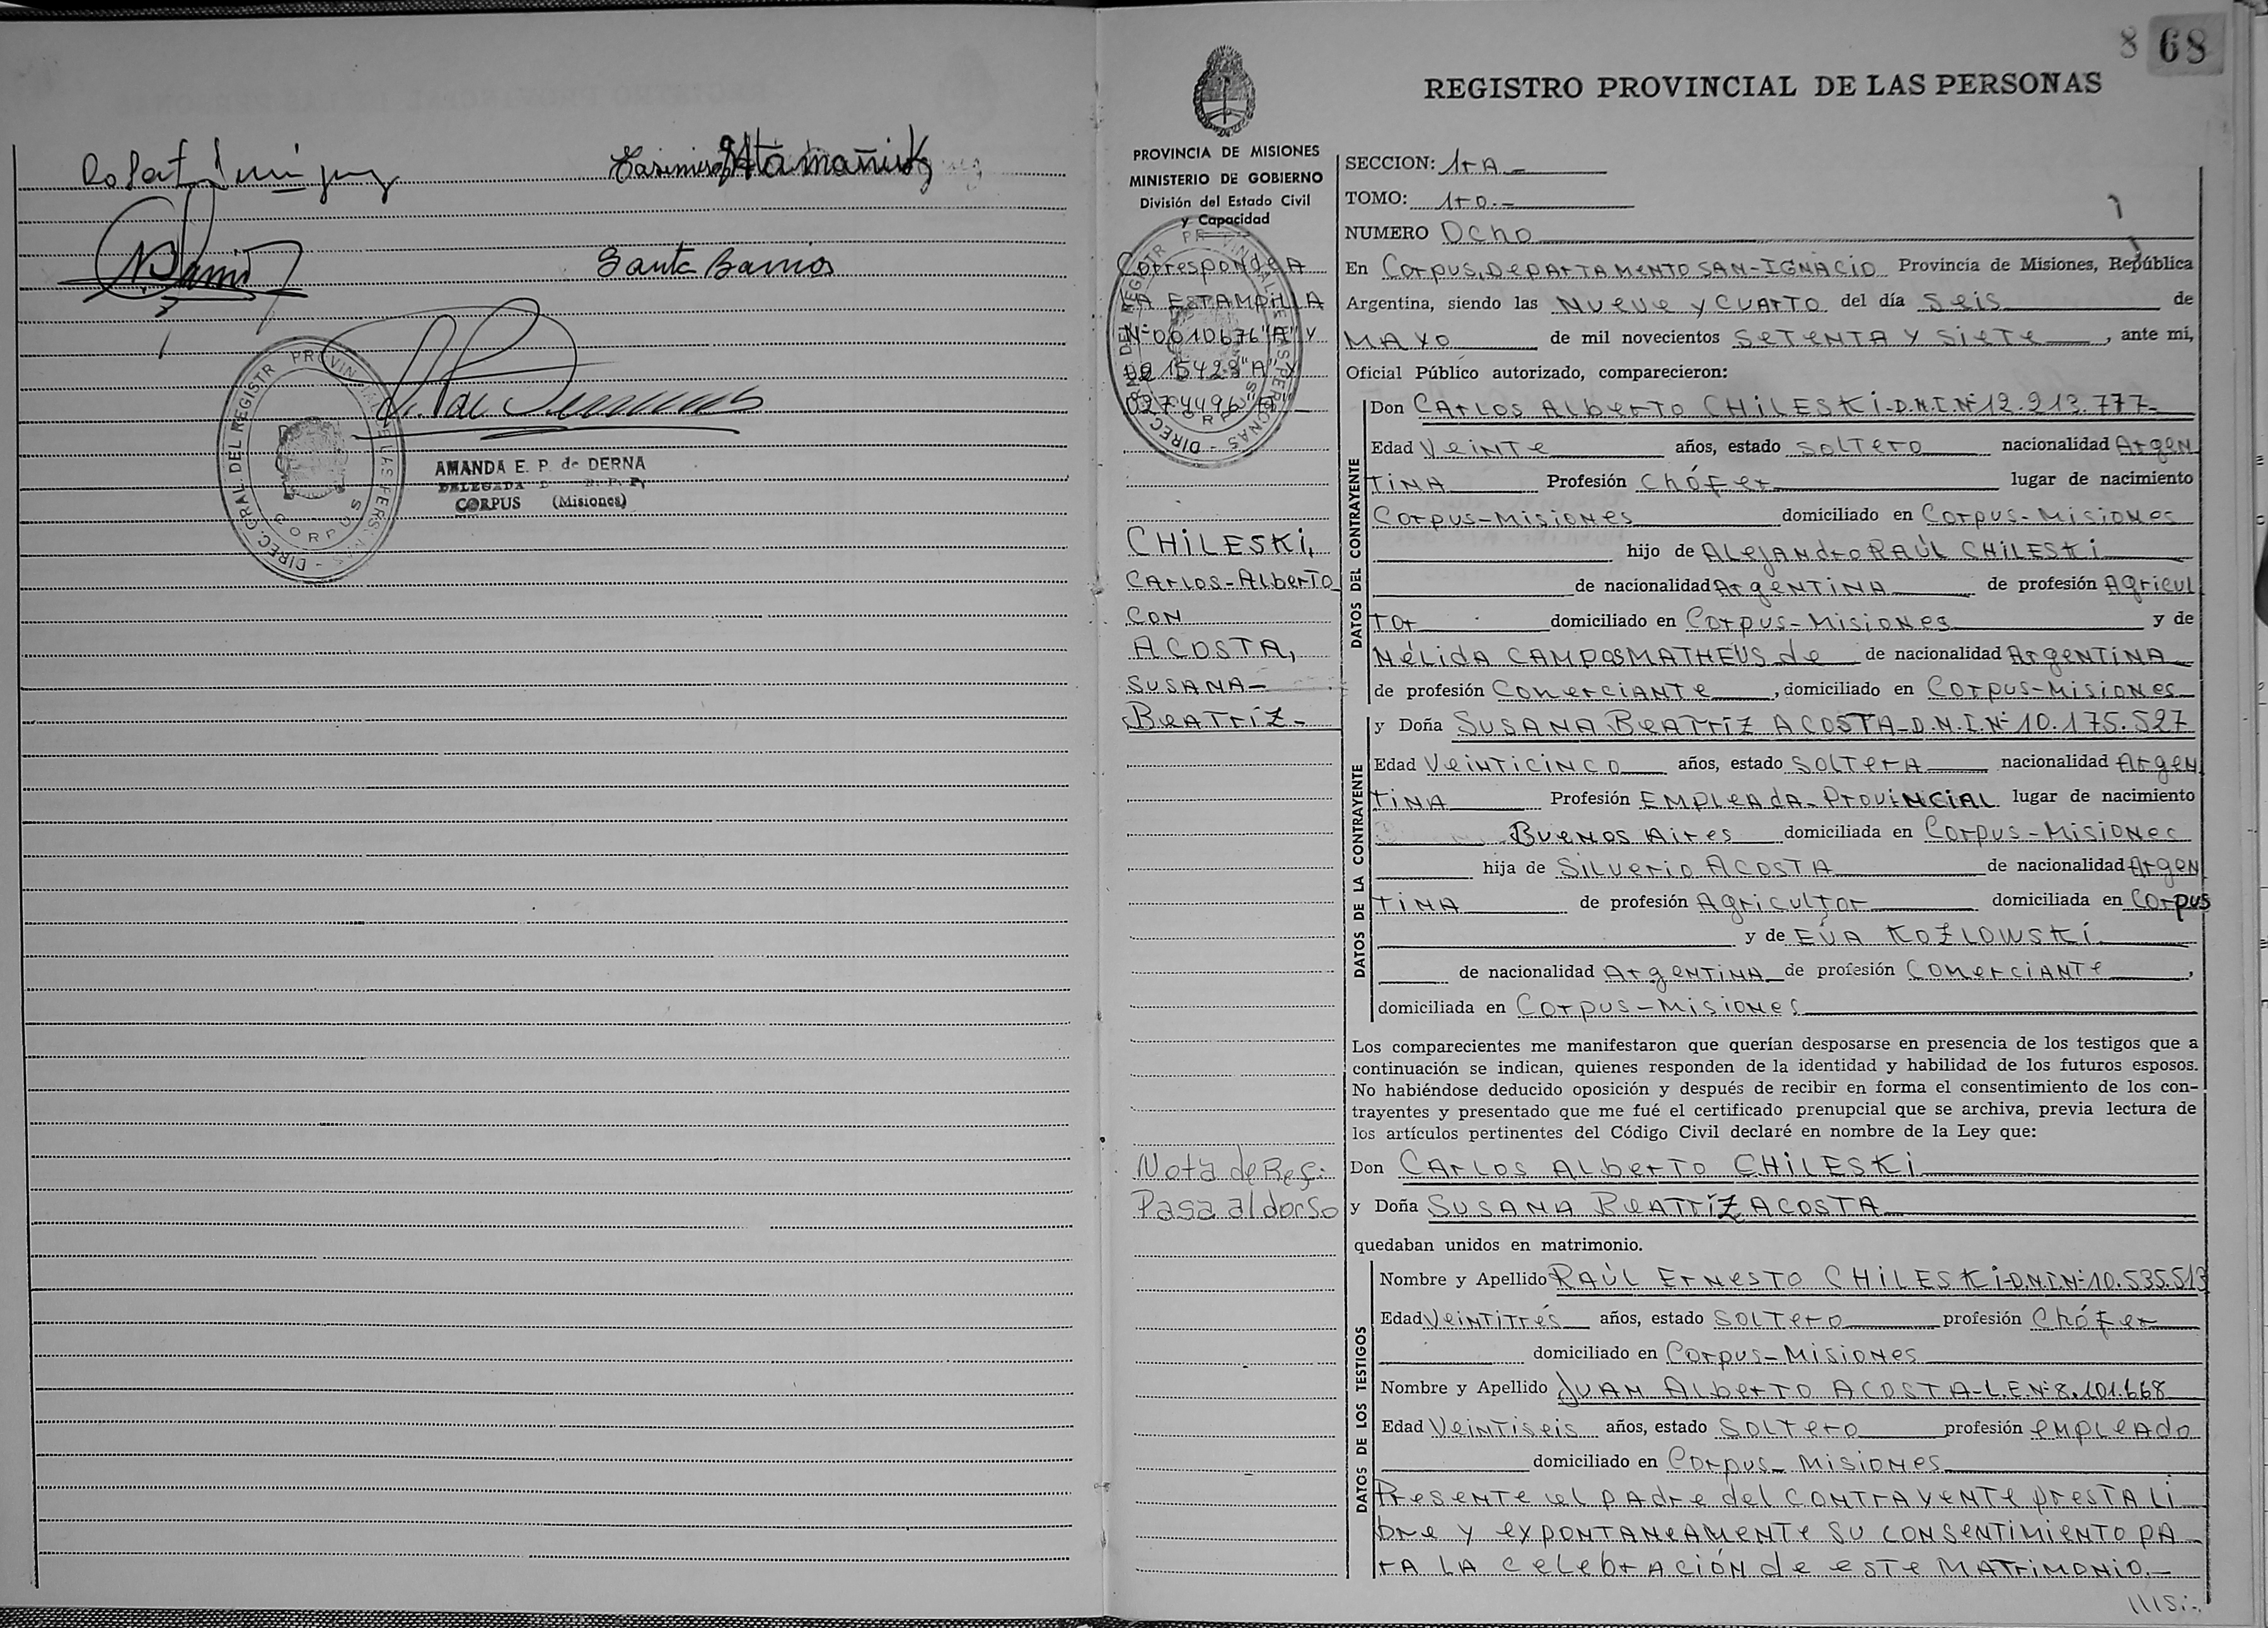 Santa Barrios
PROVINCIAL DE LAS PERS.
DIREC. GRAL. DEL REGISTR
CORPUS
AMANDA E. P. de DERNA
DELEGADA
CORPUS (Misiones)
8 68
REGISTRO PROVINCIAL DE LAS PERSONAS
PROVINCIA DE MISIONES
MINISTERIO DE GOBIERNO
División del Estado Civil
y Capacidad
Corresponde A
LA ESTAMPILLA
Nº 0010676 "A" y
CHiLESKi,
CArLos-AlberTo
CON
ACOSTA,
SUSANA-
BeATriZ-
Nota de Ref:
Pasa al dorso
SECCION: 1rA-
TOMO: 1ro.-
NUMERO Ocho
En Corpus, DepArTAMeNTO SAN-IGNACIO Provincia de Misiones, República
Argentina, siendo las Nueve y CuArTo del día Seis de
MAYO de mil novecientos SeTeNTA y SieTe, ante mí,
Oficial Público autorizado, comparecieron:
DATOS DEL CONTRAYENTE
Don CArLos AlberTo CHiLESKi-D.N.I.Nº 12.213.777-
Edad VeiNTe años, estado SolTero nacionalidad ArgeN
TiNA Profesión Chófer lugar de nacimiento
Corpus-MisioNes domiciliado en Corpus-MisioNes
hijo de ALejANdro RAÚL CHiLESKi
de nacionalidad ArgeNTiNA de profesión Agricul
Tor domiciliado en Corpus-MisioNes y de
NéLidA CAMPOS MATHEUS de de nacionalidad ArgeNTiNA
de profesión ComerciANTe, domiciliado en Corpus-MisioNes
DATOS DE LA CONTRAYENTE
y Doña SUSANA BeATriZ ACOSTA-D.N.I.Nº 10.175.527
Edad VeiNTiciNco años, estado SolTerA nacionalidad ArgeN
TiNA Profesión EMpLeAdA-ProviNCiAL lugar de nacimiento
BueNos Aires domiciliada en Corpus-MisioNes
hija de SiLverio ACOSTA de nacionalidad ArgeN
TiNA de profesión AgriculTor domiciliada en Corpus
y de EVA KOZLOWSKi
de nacionalidad ArgeNTiNA de profesión ComerciANTe,
domiciliada en Corpus-MisioNes
Los comparecientes me manifestaron que querían desposarse en presencia de los testigos que a
continuación se indican, quienes responden de la identidad y habilidad de los futuros esposos.
No habiéndose deducido oposición y después de recibir en forma el consentimiento de los con-
trayentes y presentado que me fué el certificado prenupcial que se archiva, previa lectura de
los artículos pertinentes del Código Civil declaré en nombre de la Ley que:
Don CArLos AlberTo CHiLESKi
y Doña SUSANA BeATriZ ACOSTA
quedaban unidos en matrimonio.
DATOS DE LOS TESTIGOS
Nombre y Apellido RAÚL ErNesTo CHiLESKi-D.N.I.Nº 10.535.513
Edad VeiNTiTrés años, estado SolTero profesión Chófer
domiciliado en Corpus-MisioNes
Nombre y Apellido JUAN AlberTo ACOSTA-L.E.Nº 8.101.668
Edad VeiNTiseis años, estado SolTero profesión eMpLeAdo
domiciliado en Corpus-MisioNes
PreseNTe el pAdre del CONTrAyeNTe presTA Li
bre y expoNTANeAMeNTe su coNseNTiMieNTo pA
rA LA celebrACióN de esTe MATriMoNio.-